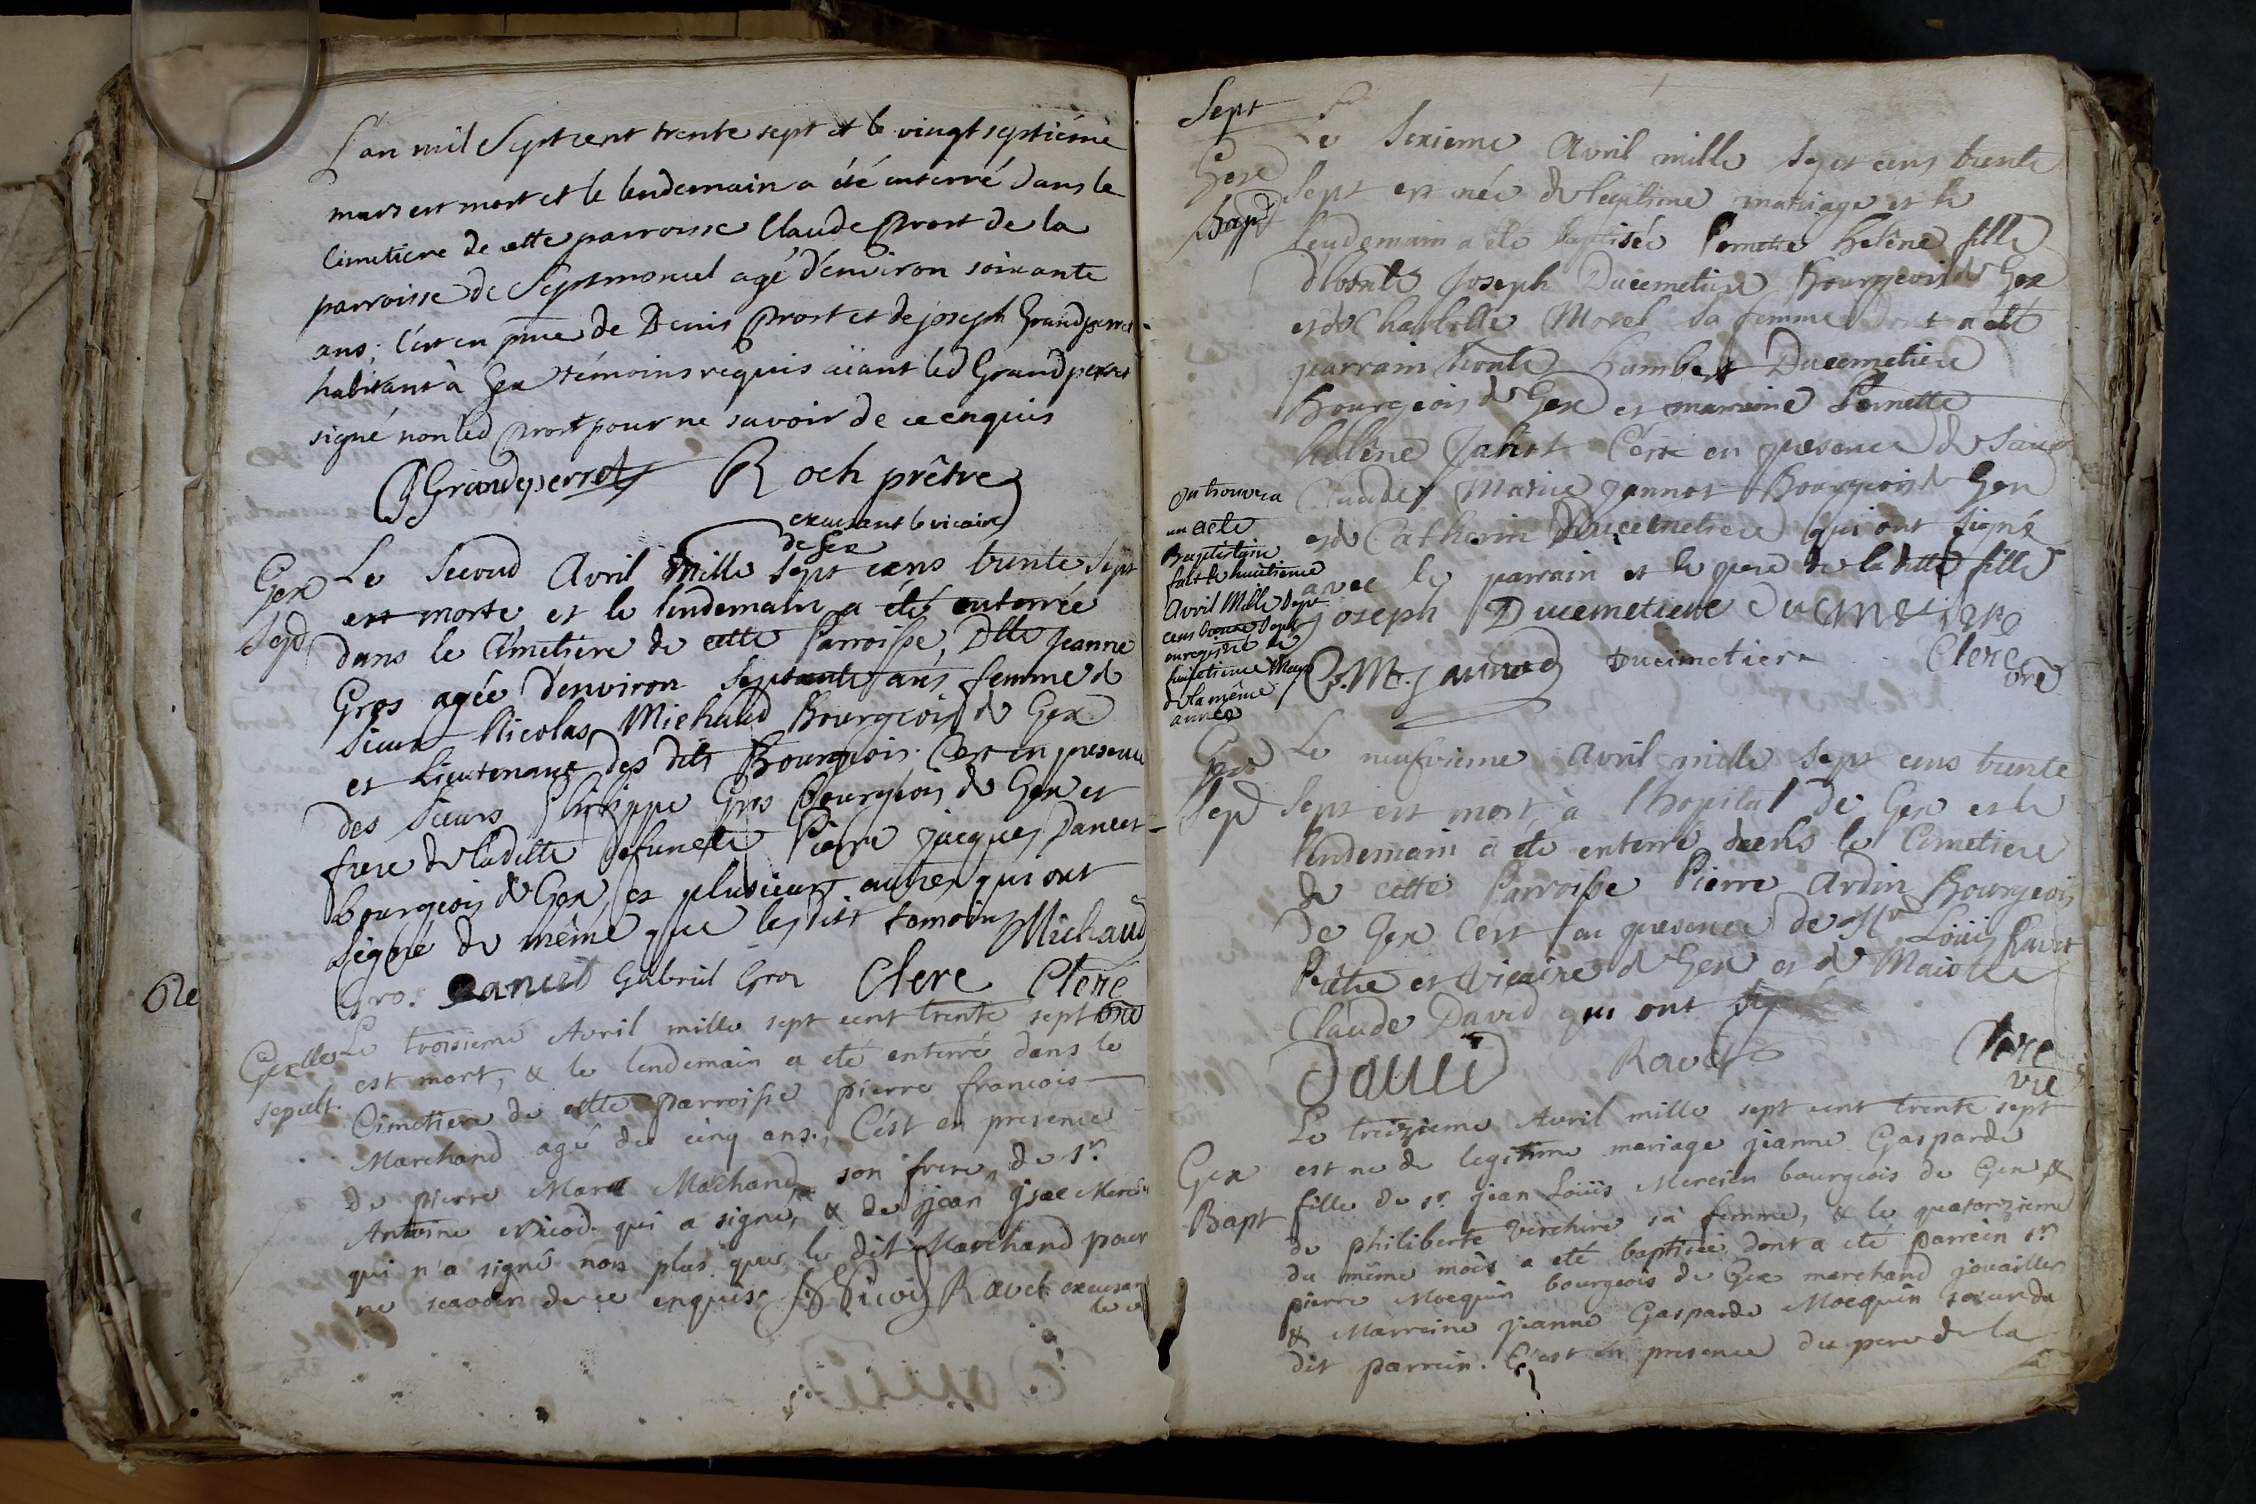 L'an mil Sept cent trente sept et le vingt septiéme
mars est mort et le lendemain a été enterré dans le
Cimetiere de cette parroisse Claude Prost de la
parroisse de Septmoncel agé d'environ soixante
ans; C'est en pnce de Denis Prost et de joseph Grandperret
habitant à Gex témoins requis aiiant led Grandperret
signé non led Prost pour ne savoir de ce enquis
JGrandperret Roch prêtre
excusant le vicaire
de Gex
Gex
Sepd
Le Second Avril Mille Sept cens trente Sept
est morte et le lendemain a été enterrée
dans le Cimetiere de cette Parroisse, Dlle Jeanne
Gros agée d'environ Septante ans femme de
Sieur Nicolas Michaud Bourgeois de Gex
et Lieutenant des dits Bourgeois. C'est en presence
des Sieurs Philippe Gros Bourgeois de Gex et
frere de laditte defuncte Pierre Jacques Dancet
bourgeois de Gex, et plusieurs autres qui ont
Signé de même que lesdits temoins Michaud
Gro. Dancet Gabriel Gros Clere Clerc
vre
Gex
sepult.
Le troisieme Avril mille sept cent trente sept
est mort, & le lendemain a eté enterré dans le
Cimetiere de cette parroisse pierre francois
Marchand agé de cinq ans., C'est en presence
de pierre Marc Machand son frere, de sr.
Antoine Nicod qui a signé, & de jean jsac
qui n'a signé non plus que le dit Marchand pour
ne scavoir de ce enquis. Nicod Ravet excusant
le v
Sept
Gex
Bapt
Le Sixieme Avril mille Sept cens trente
Sept est née de legitime mariage et le
lendemain a été baptisée Pernette Helêne fille
d'hoste Joseph Ducemetiere Bourgeois de Gex
et de Charlotte Morel Sa femme dont a été
parrain honte humbert Ducemetiere
Bourgeois de Gex et marraine Pernette
hélêne C'est en presence de Sieur
Claude Marie Jannot Bourgeois de Gex
et de Catherin Ducemetiere qui ont Signé
avec le parrain et le pere de laditte fille
joseph Ducemetiere
C. M. jannod Ducimetiere Clerc
vre
on trouvera
un acte
Baptistaire
fait le huitieme
avril Mille Sept
cens trente Sept
enregistré le
huitieme May
de la même
année
Gex
Sepd
Le neufvieme Avril mille Sept cens trente
Sept est mort, à l'hopital de Gex et le
lendemain à eté enterré dans le Cimetiere
de cette Parroisse Pierre Ardin Bourgeois
de Gex C'est en presence de Mre Loüis Ravet
Prêtre et Vicaire de Gex et de Maistre
Claude David qui ont
David Ravet Clerc
vre
Gex
Bapt
Le treizieme Avril mille sept cent trente sept
est ne de legitime mariage jeanne Gasparde
fille de sr. jean Loüis Mercier bourgeois de Gex, &
de philiberte Verchere sa femme, & le quatorzieme
du même mois a eté baptisée dont a eté parrein sr.
pierre Mocquin bourgeois de Gex marchand jouailler
& Marreine jeanne Gasparde Mocquin soeur du
dit parrein. C'est en presence du pere de la